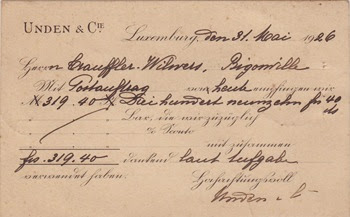 UNDEN & CIE
Luxemburg, den 31. Mai 1926
Herrn Crauffler-Wilwers, Bigonville
Mit Postauftrag von heute empfingen wir
frs 319.40 Dreihundert neunzehn frs 40 cts
bar, die wir zuzüglich
% Sconto
mit zusammen
frs. 319.40 dankend laut Aufgabe
verwendet haben. Hochachtungsvoll
Unden & Cie